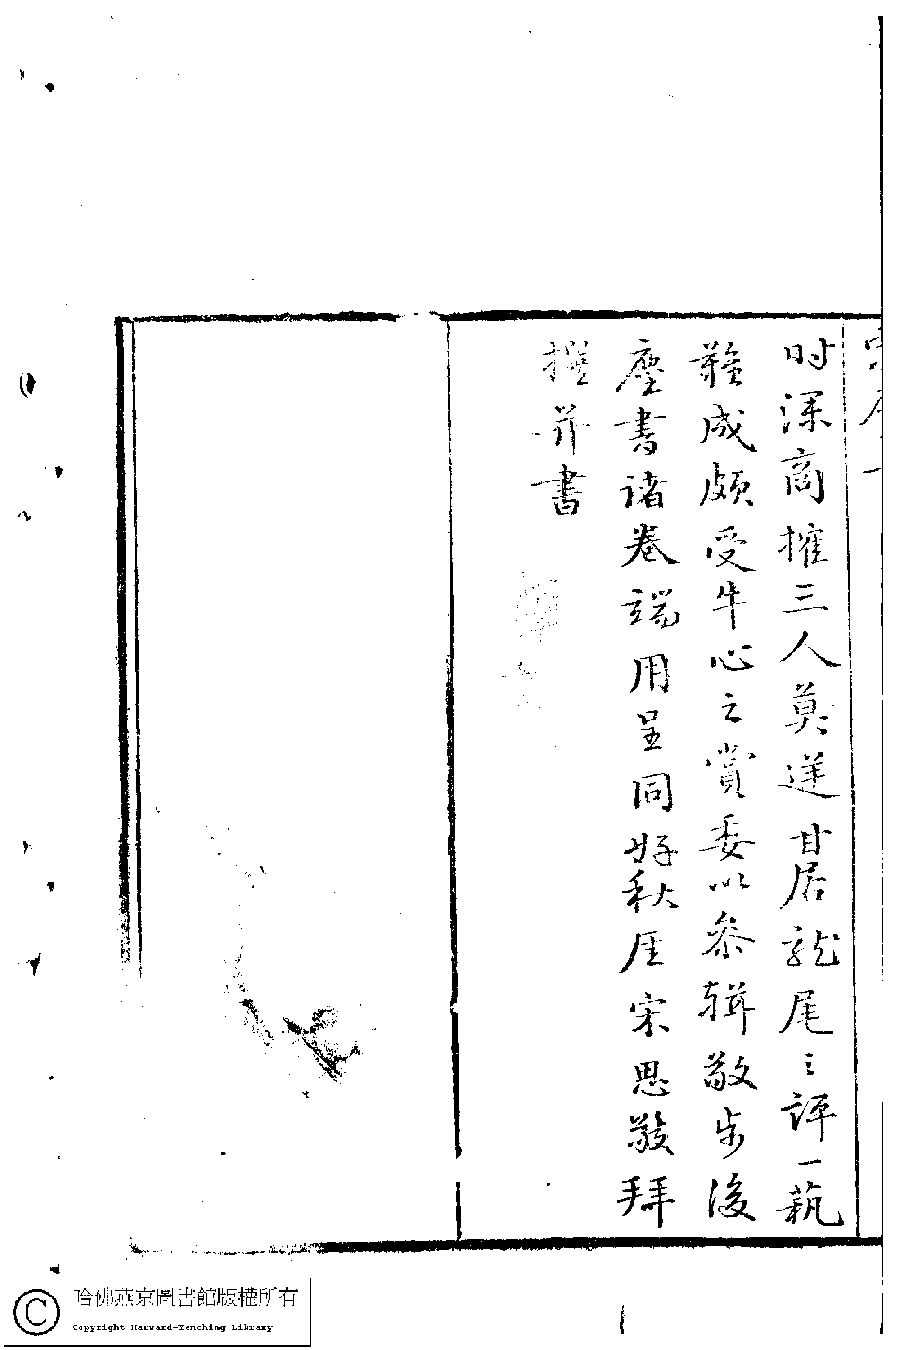 时深商搉三人莫逆甘居龍尾之評一蓺
難成頗受牛心之賞委以參輯敬步後
塵書諸卷端用呈同好秋厓宋思敬拜
撰并書
哈佛燕京圖書館版權所有
Copyright Harvard-Yenching Library